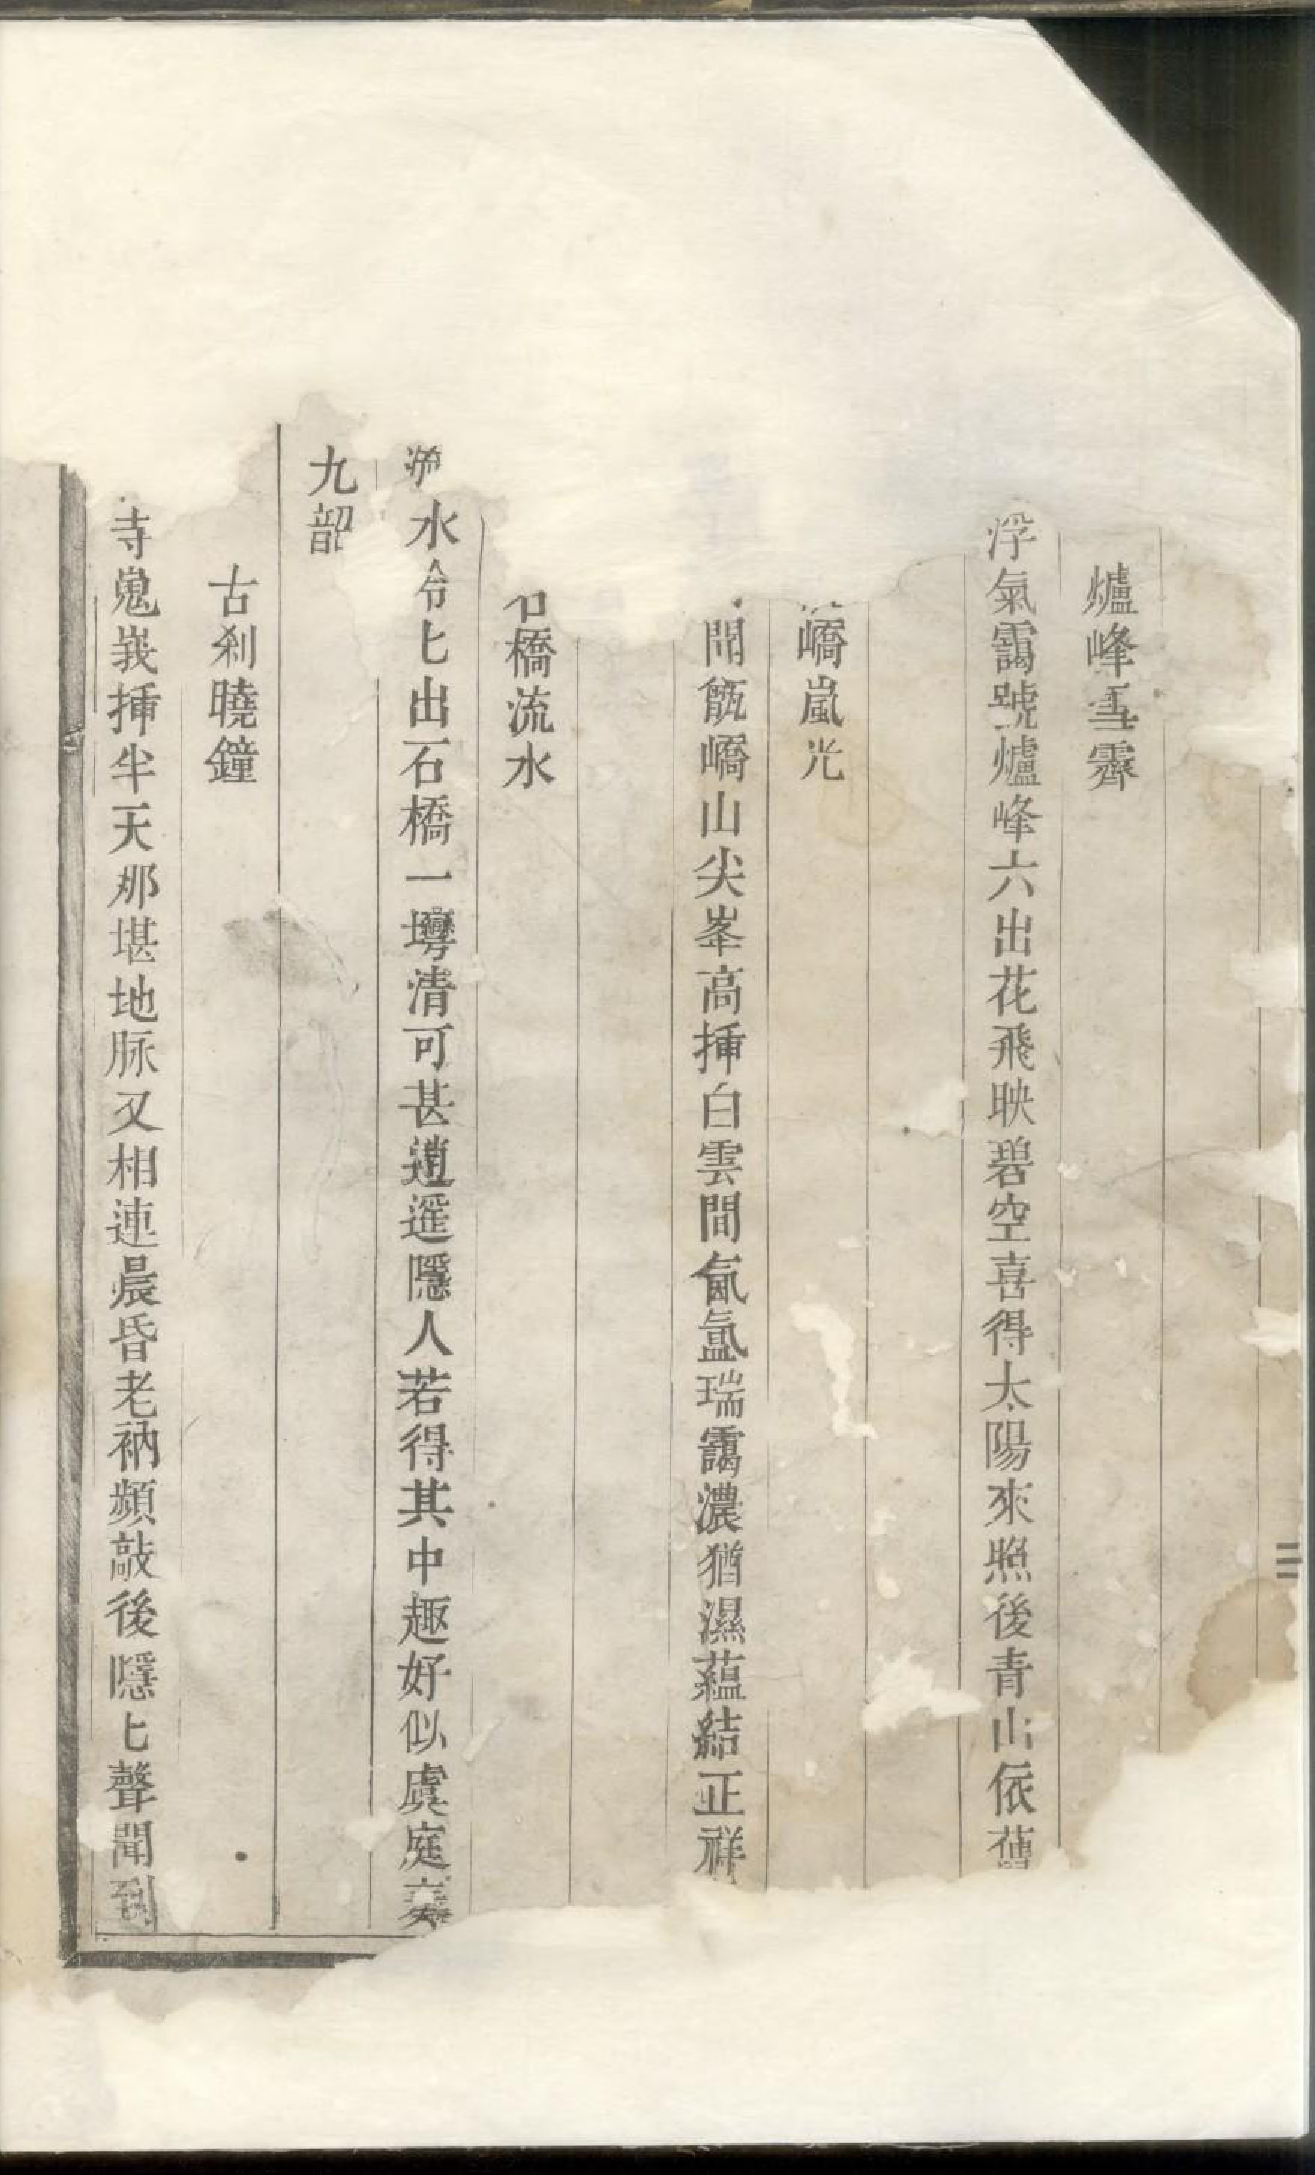 爐峰雪霽
浮氣靄號爐峰六出花飛映碧空喜得太陽來照後青山依舊
嶠嵐光
開甑嶠山尖峯高揷白雲間氤氳瑞靄濃猶濕蘊結正祥
石橋流水
水冷匕出石橋一灣清可甚逍遥隱人若得其中趣好似虞庭奏
九韶
古刹曉鐘
寺嵬峩揷半天那堪地脉又相連晨昏老衲頻敲後隱匕聲聞到